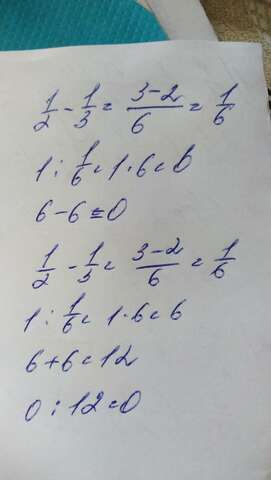 1/2 - 1/3 = (3-2)/6 = 1/6
1 : 1/6 = 1 · 6 = 6
6 - 6 = 0
1/2 - 1/3 = (3-2)/6 = 1/6
1 : 1/6 = 1 · 6 = 6
6 + 6 = 12
0 : 12 = 0